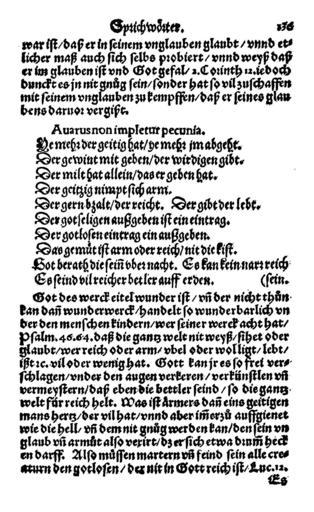 Sprichwörter. 136
war ist / daß er in seinem vnglauben glaubt / vnnd et⸗
licher maß auch sich selbs probiert / vnnd weyß daß
er im glauben ist vnd Got gefal / 2. Corinth 12. iedoch
dunckt es jn nit gnůg sein / sonder hat so vil zuschaffen
mit seinem vnglauben zu kempffen / daß er seines glau
bens daruor vergißt.
Auarus non impletur pecunia.
Ye mehr der geitig hat / ye mehr jm abgeht.
Der gewint mit geben / der wirdigen gibt.
Der milt hat allein / das er geben hat.
Der geitzig nimpt sich arm.
Der gern bzalt / der reicht. Der gibt der lebt.
Der gotseligen außgeben ist ein eintrag.
Der gotlosen eintrag ein außgeben.
Das gemüt ist arm oder reich / nit die kist.
Got berath die sein̄ vber nacht. Es kan kein narr reich
Es seind vil reicher betler auff erden. (sein.
Got des werck eitel wunder ist / vn̄ der nicht thůn
kan dan̄ wunderwerck / handelt so wunderbarlich vn
der den menschen kindern / wer seiner werck acht hat /
Psalm. 46. 64. daß die gantz welt nit weyß / sihet oder
glaubt / wer reich oder arm / vbel oder wolligt / lebt /
ißt ꝛc. vil oder wenig hat. Gott kan jr es so frei ver⸗
schlagen / vnder den augen verkeren / verkünstlen vn̄
vermeystern / daß eben die bettler seind / so die gantz
welt für reich helt. Was ist ärmers dan̄ eins geitigen
mans hertz / der vil hat / vnnd aber im̄erzů auffgienet
wie die hell / vn̄ dem nit gnůg werden kan / den sein vn
glaub vn̄ armůt also verirt / dz er sich etwa drum̄ heck
en darff. Also müssen martern vn̄ feind sein alle cre⸗
aturn den gotlosen / der nit in Gott reich ist / Luc. 12.
Es